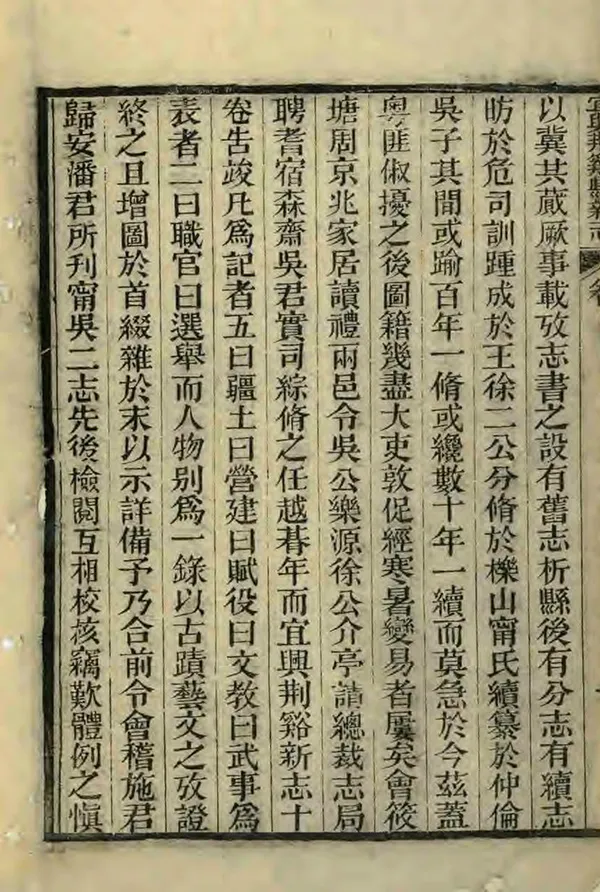 宜興荆谿縣新志 卷
以冀其蕆厥事載攷志書之設有舊志析縣後有分志有續志
昉於危司訓踵成於王徐二公分脩於櫟山甯氏續纂於仲倫
吳子其間或踰百年一脩或纔數十年一續而莫急於今茲蓋
粵匪俶擾之後圖籍幾盡大吏敦促經寒暑變易者屢矣會筱
塘周京兆家居讀禮兩邑令吳公樂源徐公介亭請總裁志局
聘耆宿森齋吳君實司綜脩之任越朞年而宜興荆谿新志十
卷吿竣凡爲記者五曰疆土曰營建曰賦役曰文教曰武事爲
表者二曰職官曰選舉而人物别爲一錄以古蹟藝文之攷證
終之且增圖於首綴雜於末以示詳備予乃合前令會稽施君
歸安潘君所刊甯吳二志先後檢閱互相校核竊歎體例之愼